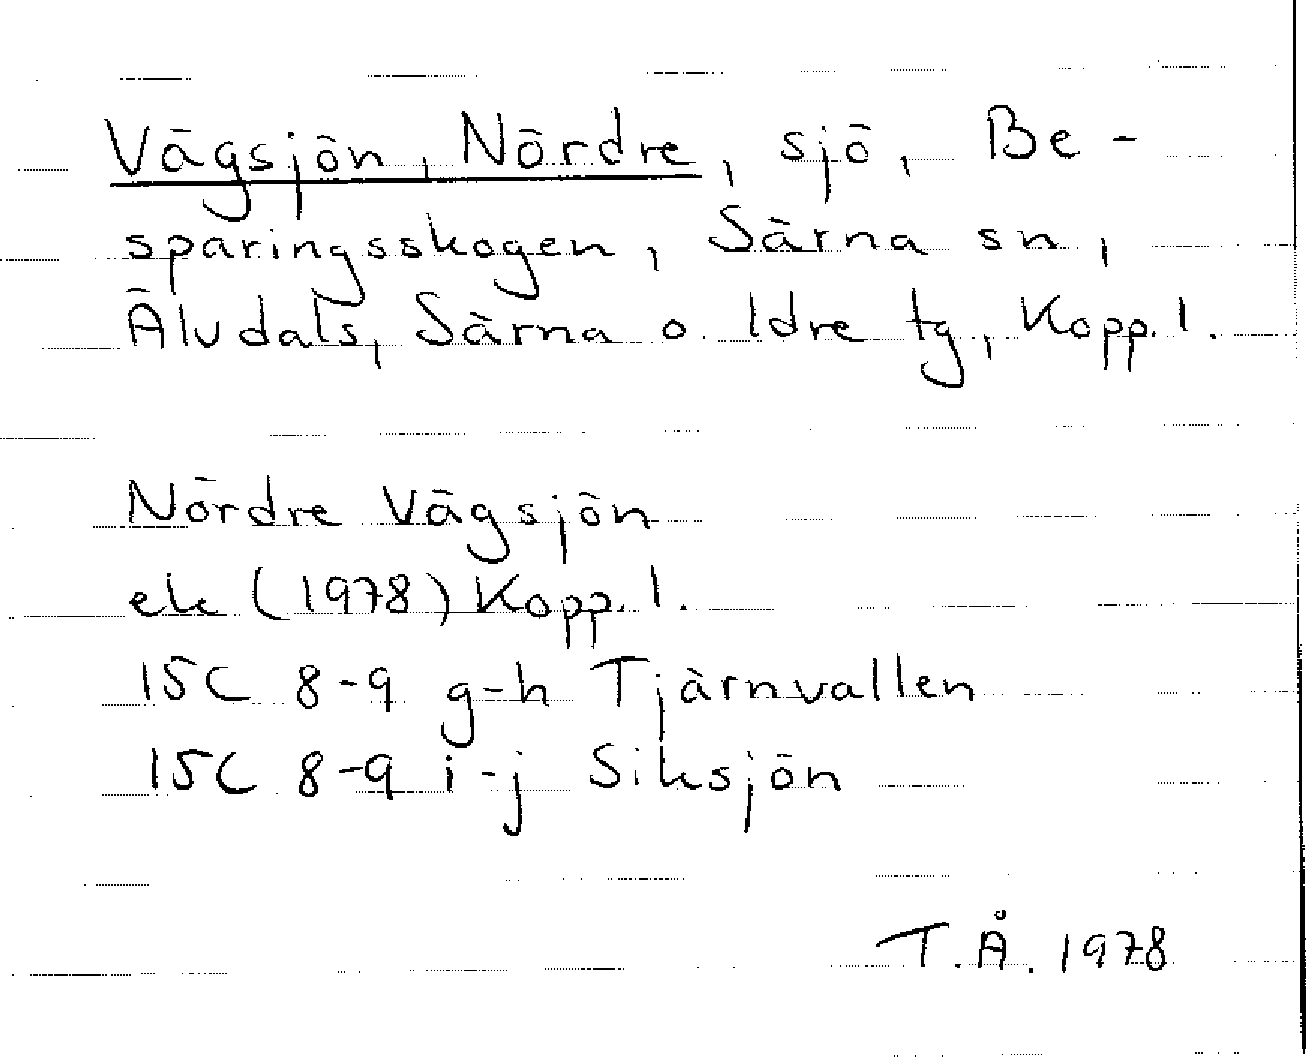 Vägsjön, Nördre, sjö, Be-
sparingsskogen, Särna sn,
Älvdals, Särna o. Idre tg, Kopp. l.
Nördre Vägsjön
ek (1978) Kopp. l.
15C 8-9 g-h Tjärnvallen
15C 8-9 i-j Siksjön
T.Å. 1978